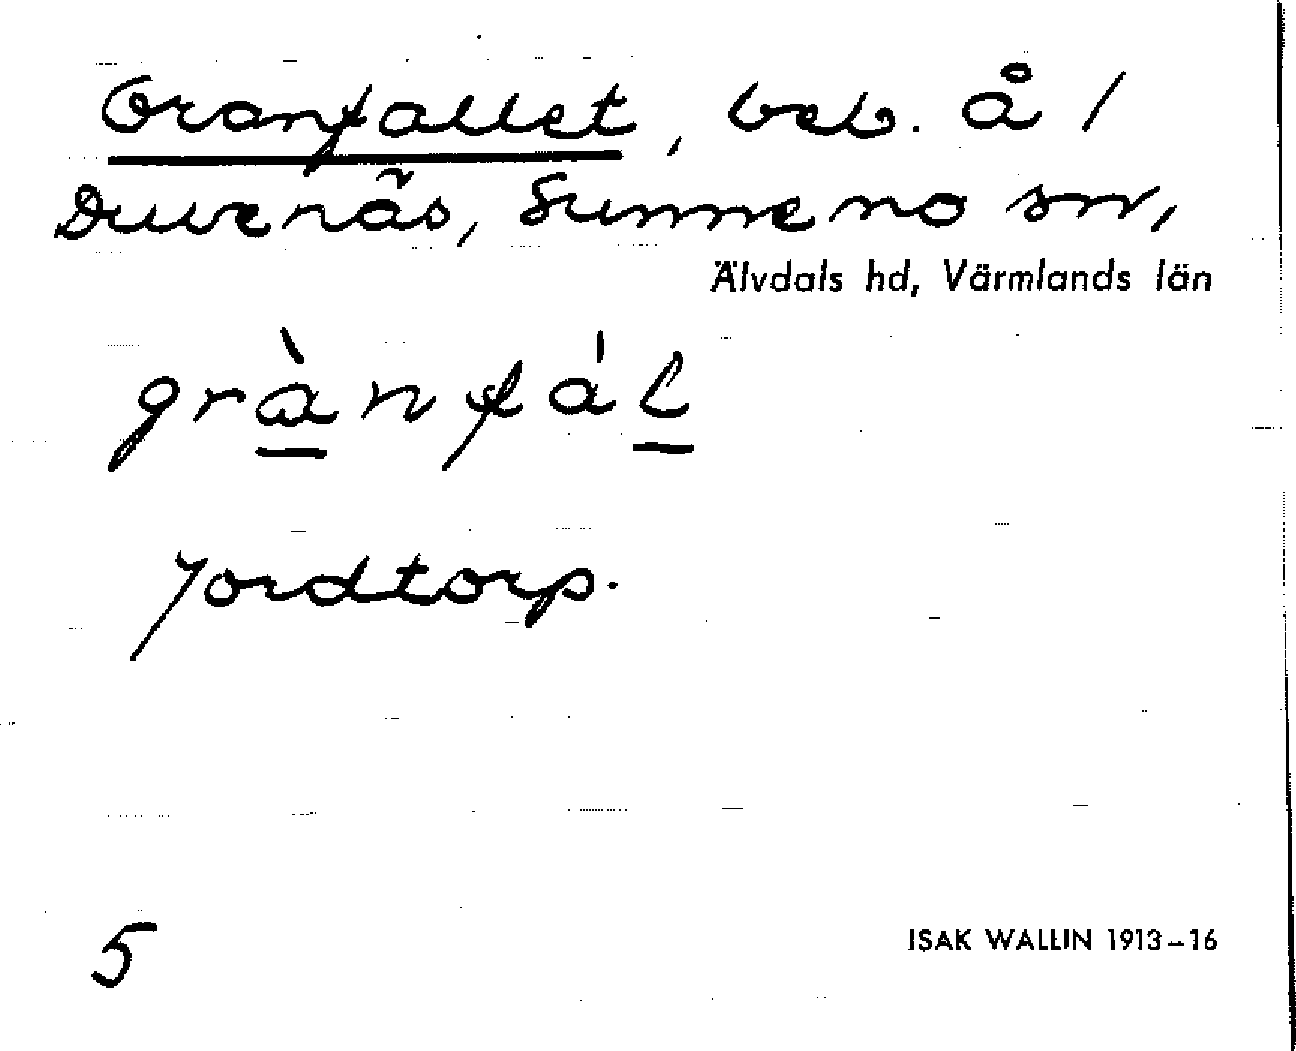 Granfallet, beb. å /
Duvenäs, Sunnemo sn,
Älvdals hd, Värmlands län
grànfál
Jordtorp.
5
ISAK WALLIN 1913-16